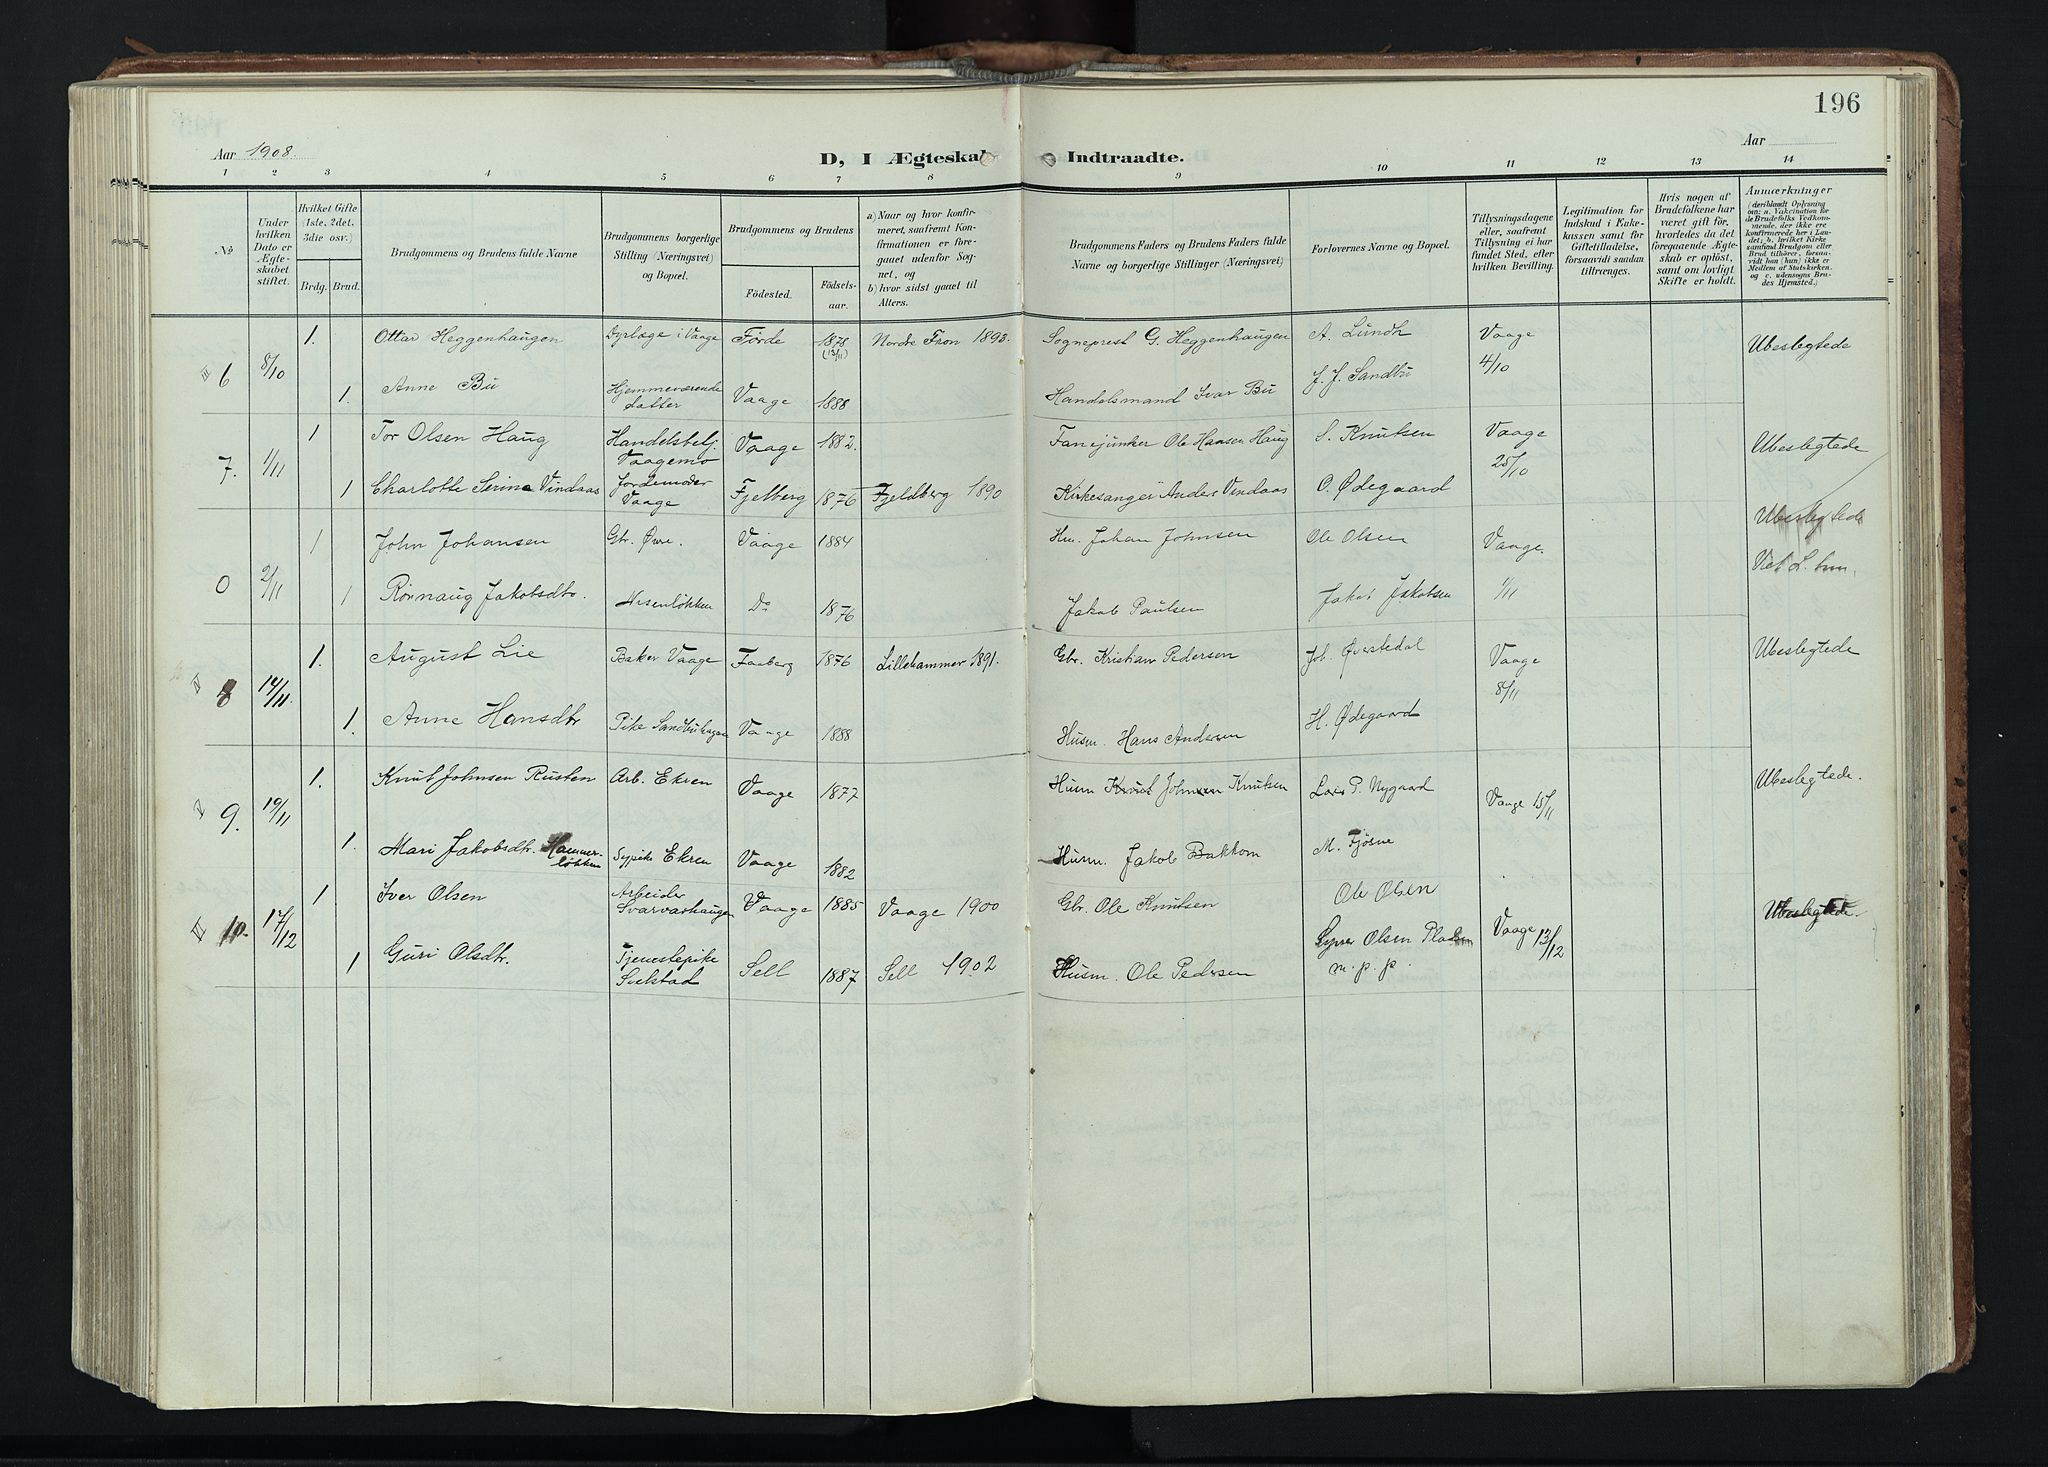 196
Aar 1908.
D, I Ægteskab Indtraadte.
Aar
1 2 3 4 5 6 7 8 9 10 11 12 13 14
No
Under hvilken Dato er Ægteskabet stiftet.
Hvilket Gifte (1ste, 2det, 3die osv.)
Brdg. Brud.
Brudgommens og Brudens fulde Navne
Brudgommens borgerlige Stilling (Næringsvei) og Bopæl.
Brudgommens og Brudens
Födested. Födselsaar.
a) Naar og hvor konfirmeret, saafremt Konfirmationen er foregaaet udenfor Sognet, og
b) hvor sidst gaaet til Alters.
Brudgommens Faders og Brudens Faders fulde Navne og borgerlige Stillinger (Næringsvei)
Forlovernes Navne og Bopæl.
Tillysningsdagene eller, saafremt Tillysning ei har fundet Sted, efter hvilken Bevilling.
Legitimation for Indskud i Enkekassen samt for Giftetilladelse, forsaavidt saadan tiltrænges.
Hvis nogen af Brudefolkene har været gift för, hvorledes da det foregaaende Ægteskab er oplöst, samt om lovligt Skifte er holdt.
Anmærkninger (deriblandt Oplysning om: a. Vakcination for de Brudefolks Vedkommende, der ikke ere konfirmerede her i Landet; b. hvilket Kirkesamfund Brudgom eller Brud tilhörer, forsaavidt han (hun) ikke er Medlem af Statskirken, og c. udensogns Brudes Hjemsted.)
6 8/10 1. Ottar Heggenhaugen Dyrlæge i Vaage Førde 1878 (13/11) Nordre Fron 1893. Sogneprest G. Heggenhaugen A. Lundh Vaage 4/10 Ubeslegtede
1. Anne Bu Hjemmeværende datter Vaage 1888 Handelsmand Ivar Bu J. J. Sandbu
7. 1/11 1 Tor Olsen Haug Handelsbetj. Vaagemo Vaage 1882. Fanejunker Ole Hansen Haug S. Knutsen Vaage 25/10 Ubeslegtede
1 Charlotte Serine Vindaas Jordemoder Vaage Fjelberg 1876 Fjeldberg 1890 Kirkesanger Anders Vindaas O. Ødegaard
0 2/11 1 John Johansen Gbr. Øvre. Vaage 1884 Hm. Johan Johnsen Ole Olsen Vaage. 1/11 Ubeslegtede
1 Rønnaug Jakobsdtr. Nisenløkken Do 1876 Jakob Paulsen Jakob Jakobsen
8 14/11 1. August Lie Baker Vaage Faaberg 1876 Lillehammer 1891. Gbr. Kristian Pedersen Joh. Øverstedal Vaage 8/11 Ubeslegtede
1. Anne Hansdtr Pike Sandbuhagen Vaage 1888 Husm. Hans Andersen H. Ødegaard
9. 19/11 1. Knut Johnsen Rusten Arb. Ekren Vaage 1877 Husm Knut Johnsen Knutsen Lars P. Nygaard Vaage 15/11 Ubeslegtede.
1. Mari Jakobsdtr. Hammerløkken Sypike Ekren Vaage 1882 Husm. Jakob Bakkom M. Fjøsne
10. 17/12 1 Iver Olsen Arbeider Svarvarhaugen Vaage 1885 Vaage 1900 Gbr. Ole Knutsen Ole Olsen Vaage 13/12 Ubeslegtede.
1 Guri Olsdtr. Tjenestepike Selstad Sell 1887 Sell 1902 Husm. Ole Pedersen Syver Olsen m. p. p.